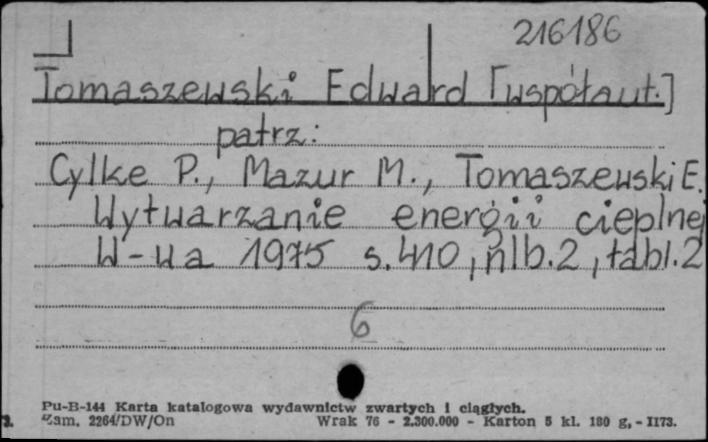 216186
Tomaszewski Edward [współaut.]
patrz:
Cylke P., Mazur M., Tomaszewski E.
Wytwarzanie energii cieplnej
W-wa 1975 s. 410, nlb. 2, tabl. 2
6
Pu-B-144 Karta katalogowa wydawnictw zwartych i ciągłych.
Zam. 2264/DW/On Wrak 76 - 2.300.000 - Karton 5 kl. 180 g, - II73.